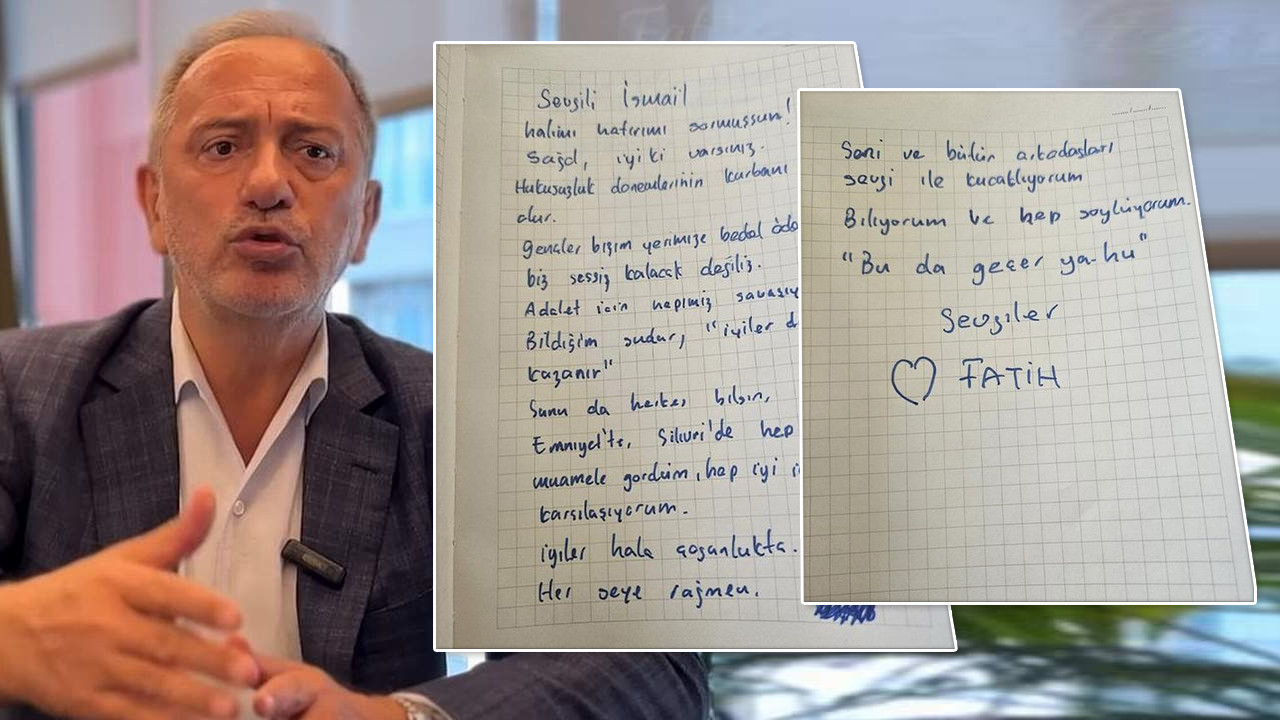 Sevgili İsmail
halimi hatırımı sormuşsun!
Sağol, iyi ki varsınız.
Hukusuzluk dönemlerinin kurbanı
olur.
gençler bizim yerimize bedel
biz sessiz kalacak değiliz.
Adalet için hepimiz
Bildiğim şudur, "iyiler
kazanır"
Şunu da herkes bilsin,
Emniyet'te, Silivri'de hep
muamele gördüm, hep iyi
karşılaşıyorum.
iyiler hala çoğunlukta.
Her şeye rağmen.
Seni ve bütün arkadaşları
sevgi ile kucaklıyorum
Biliyorum ve hep söylüyorum.
"Bu da geçer ya-hu"
Sevgiler
FATİH